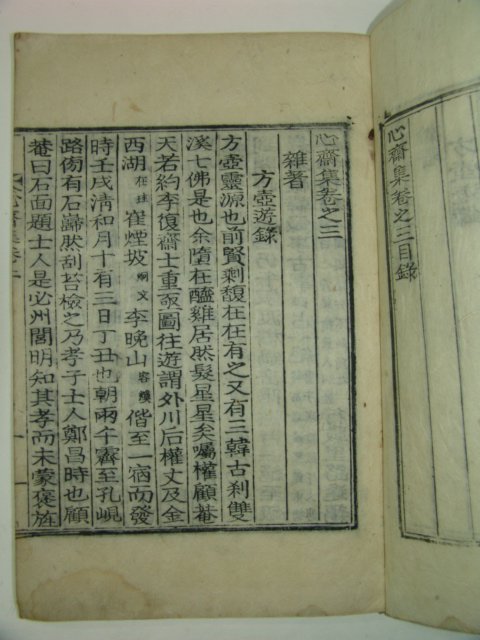 心齋集卷之三目錄
心齋集卷之三
雜著
方壺遊錄
方壺靈源也前賢剩馥在在有之又有三韓古刹雙
溪七佛是也余墮在醯雞居然髮星星矣囑權顧菴
天若約李復齋士重敬圖往遊謂外川后權丈及金
西湖在珪崔煙坡炳文李晚山容漢偕至一宿而發
時壬戌清和月十有三日丁丑也朝雨午霽至孔峴
路傍有石巋然刮苔檢之乃孝子士人鄭昌時也顧
菴曰石面題士人是必州閭明知其孝而未蒙褒旌